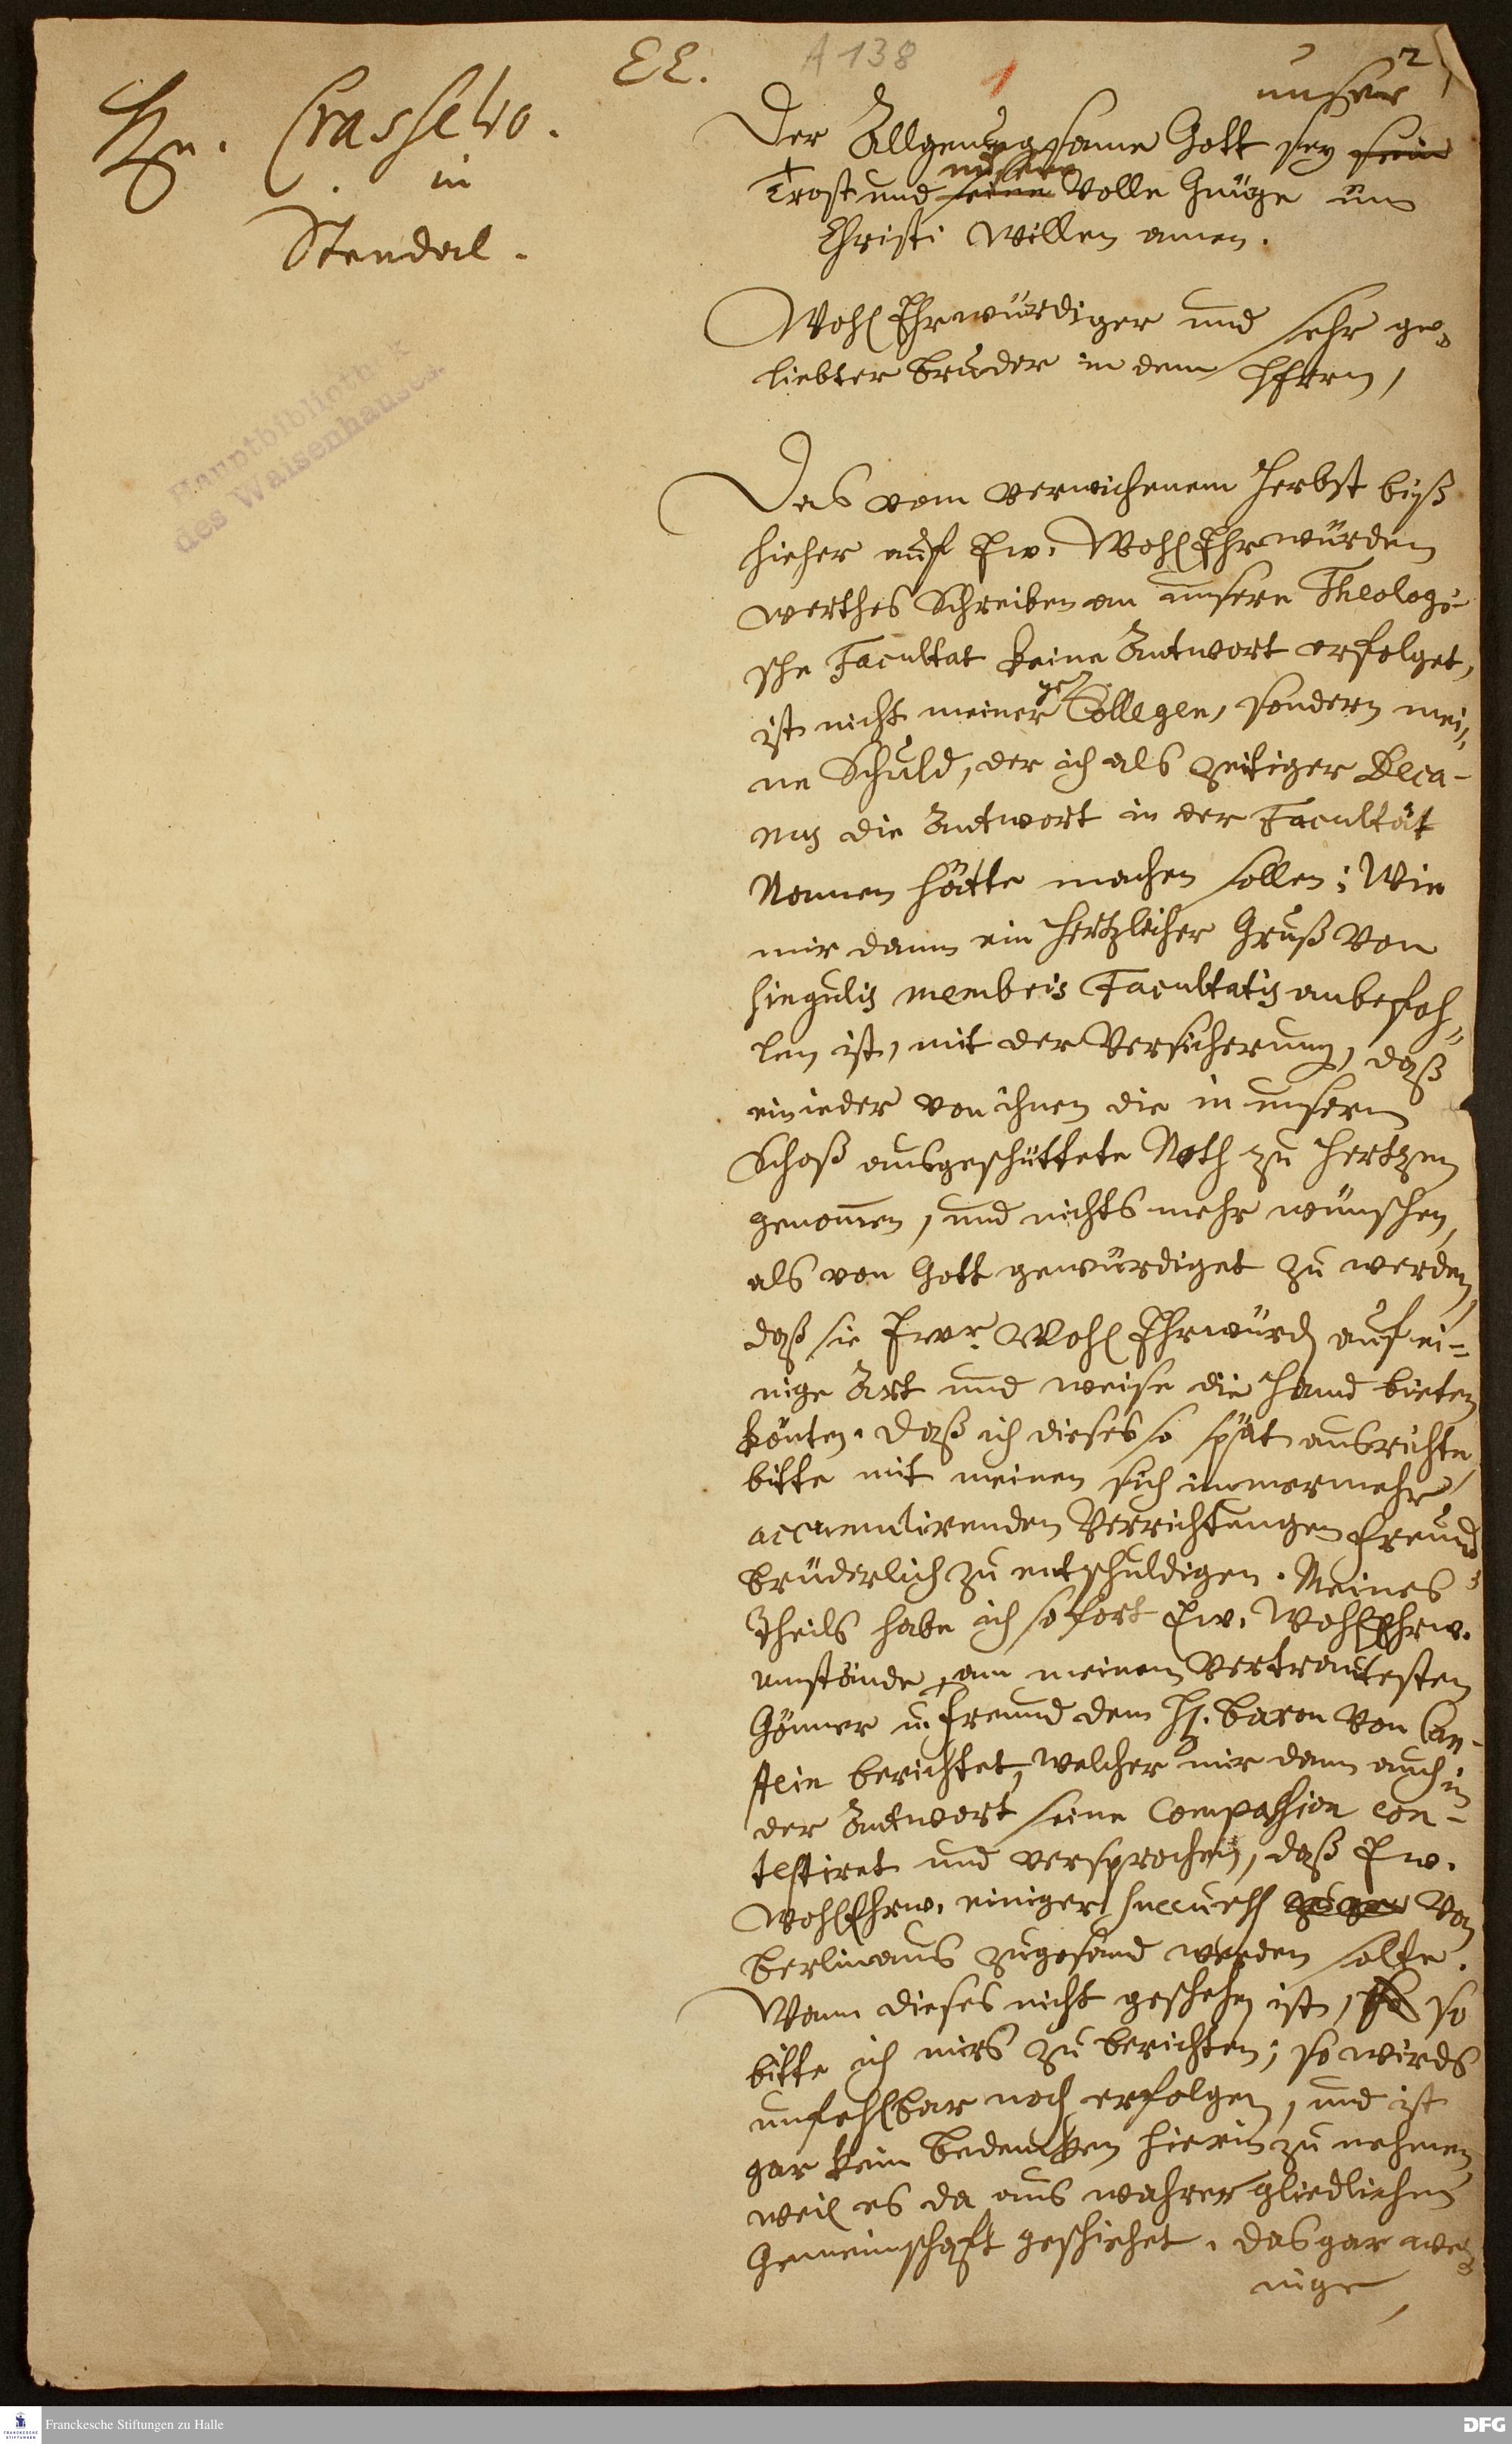 EE.
A 138
1
2
Hn. Crasselio.
in
Stendal.
Hauptbibliothek
des Waisenhauses.
unser
Der Allgenugsame Gott sey sein
unsere
Trost und seine volle Gnüge um
Christi willen amen.
WohlEhrwürdiger und sehr ge-
liebter Bruder in dem HErrn,
Das vom verwichenem Herbst biß
hieher auf Ew. WohlEhrwürden
werthes Schreiben an unsere Theologi-
sche Facultat keine Antwort erfolget,
ist nicht meiner Collegen, sondern mei-
ne Schuld, der ich als zeitiger Deca-
nus die Antwort in der Facultät
Namen hätte machen sollen; Wie
mir dann ein hertzlicher Gruß von
singulis membris Facultatis anbefoh-
len ist, mit der Versicherung, daß
ein ieder von ihnen die in unsern
Schoß ausgeschüttete Noth zu Hertzen
genom̄en, und nichts mehr wünschen,
als von Gott gewürdiget zu werden,
daß sie Ewr. WohlEhrwürd auf ei-
nige Art und weise die Hand bieten
könten. Daß ich dieses so spät ausrichte
bitte mit meinen sich immermehr
accumulirenden Verrichtungen freund
brüderlich zu entschuldigen. Meines
Theils habe ich so fort Ew. WohlEhrw.
umstände an meinem Vertrautesten
Gönner u. Freund dem H. Baron von Can-
stein berichtet, welcher mir dann auch in
der Antwort seine Compassion con-
testiret und versprochen, daß Ew.
WohlEhrw. einiger succurs von
Berlin aus zugesand werden solte.
Wann dieses nicht geschehen ist, so
bitte ich mirs zu berichten; so wirds
unfehlbar noch erfolgen, und ist
gar kein Bedencken hierin zu nehmen
weil es da aus wahrer gliedlichen
Gemeinschaft geschiehet. Das gar we-
nige
Franckesche Stiftungen zu Halle
DFG